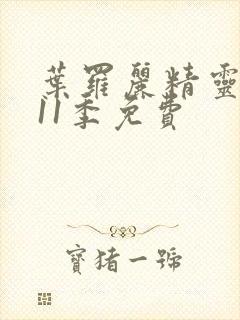 葉羅麗精靈
11季免費
寶豬一號